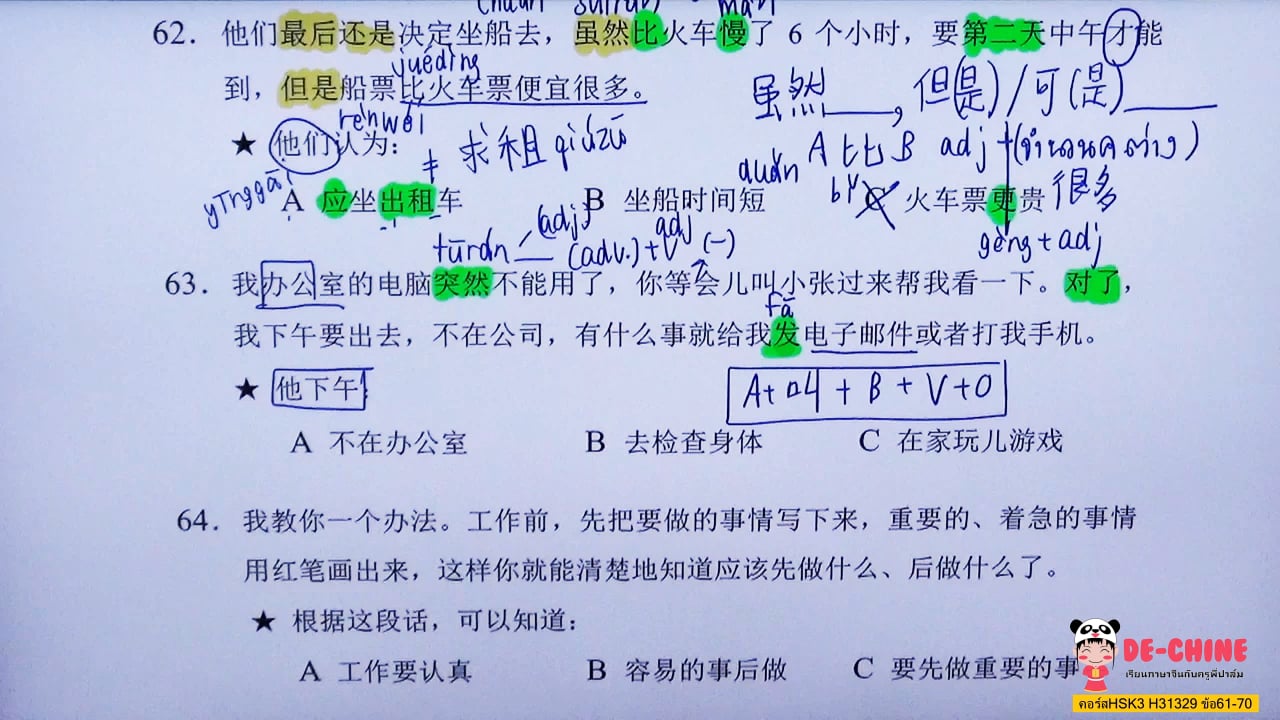 62. 他们最后还是决定坐船去，虽然比火车慢了 6 个小时，要第二天中午才能
juédìng
到，但是船票比火车票便宜很多。
虽然____，但(是)/可(是)____
rènwéi
★ 他们认为：
≠ 求租 qiúzū
A 比 B adj +(จำนวนต่าง)
yīnggāi
A 应坐出租车 B 坐船时间短 C 火车票更贵
很多
gèng + adj
tūrán
(adj.)
(adv.)+V
adj
(-)
63. 我办公室的电脑突然不能用了，你等会儿叫小张过来帮我看一下。对了，
fā
我下午要出去，不在公司，有什么事就给我发电子邮件或者打我手机。
★ 他下午：
A+叫+B+V+O
A 不在办公室 B 去检查身体 C 在家玩儿游戏
64. 我教你一个办法。工作前，先把要做的事情写下来，重要的、着急的事情
用红笔画出来，这样你就能清楚地知道应该先做什么、后做什么了。
★ 根据这段话，可以知道：
A 工作要认真 B 容易的事后做 C 要先做重要的事
DE-CHINE
เรียนภาษาจีนกับครูพี่ปาล์ม
คอร์สHSK3 H31329 ข้อ61-70